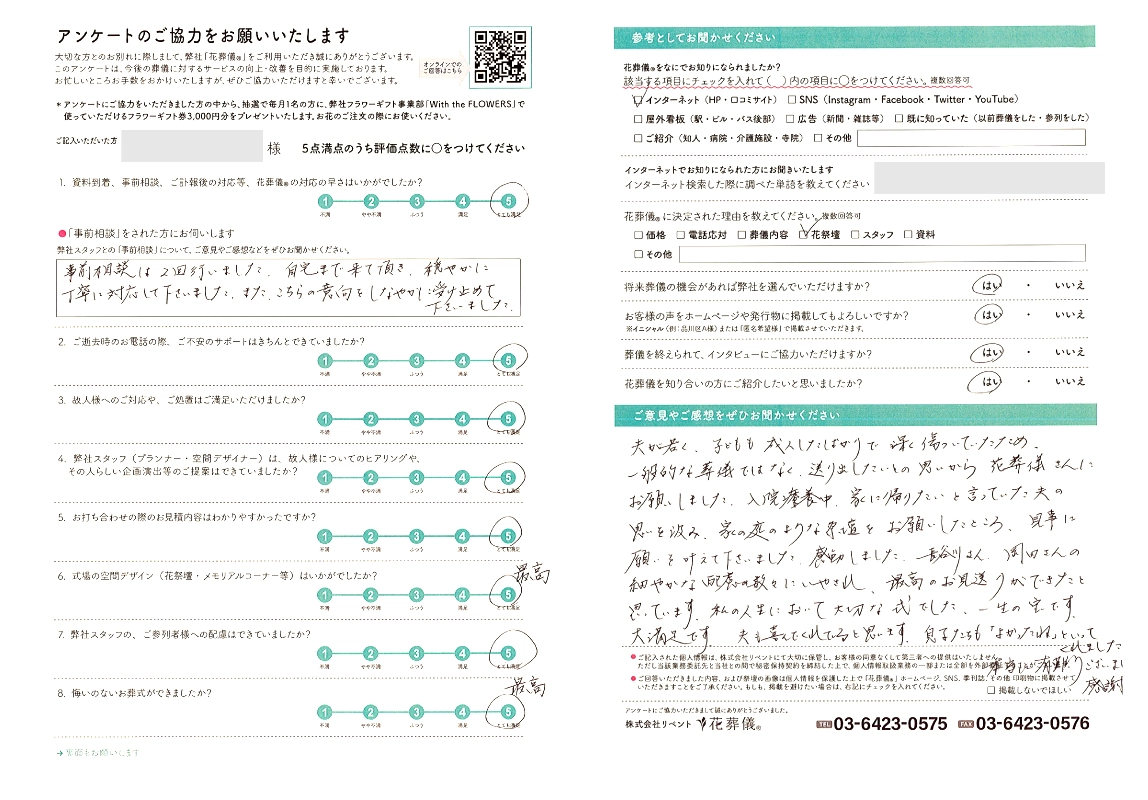 アンケートのご協力をお願いいたします
大切な方とのお別れに際しまして、弊社「花葬儀®」をご利用いただき誠にありがとうございます。
このアンケートは、今後の葬儀に対するサービスの向上・改善を目的に実施しております。
お忙しいところお手数をおかけいたしますが、ぜひご協力いただけますと幸いでございます。
オンラインでの
ご回答はこちら
＊アンケートにご協力をいただきました方の中から、抽選で毎月1名の方に、弊社フラワーギフト事業部「With the FLOWERS」で
使っていただけるフラワーギフト券3,000円分をプレゼントいたします。お花のご注文の際にお使いください。
ご記入いただいた方 様 5点満点のうち評価点数に○をつけてください
1. 資料到着、事前相談、ご訃報後の対応等、花葬儀®の対応の早さはいかがでしたか?
1 2 3 4 5
不満 やや不満 ふつう 満足 とても満足
●「事前相談」をされた方にお伺いします
弊社スタッフとの「事前相談」について、ご意見やご感想などをぜひお聞かせください。
事前相談は2回行いました。自宅まで来て頂き、穏やかに
丁寧に対応して下さいました。また、こちらの意向をしなやかに受け止めて
下さいました。
2. ご逝去時のお電話の際、ご不安のサポートはきちんとできていましたか?
1 2 3 4 5
不満 やや不満 ふつう 満足 とても満足
3. 故人様へのご対応や、ご処置はご満足いただけましたか?
1 2 3 4 5
不満 やや不満 ふつう 満足 とても満足
4. 弊社スタッフ（プランナー・空間デザイナー）は、故人様についてのヒアリングや、
その人らしい企画演出等のご提案はできていましたか?
1 2 3 4 5
不満 やや不満 ふつう 満足 とても満足
5. お打ち合わせの際のお見積内容はわかりやすかったですか?
1 2 3 4 5
不満 やや不満 ふつう 満足 とても満足
6. 式場の空間デザイン（花祭壇・メモリアルコーナー等）はいかがでしたか?
最高
1 2 3 4 5
不満 やや不満 ふつう 満足 とても満足
7. 弊社スタッフの、ご参列者様への配慮はできていましたか?
1 2 3 4 5
不満 やや不満 ふつう 満足 とても満足
8. 悔いのないお葬式ができましたか?
最高
1 2 3 4 5
不満 やや不満 ふつう 満足 とても満足
→ 裏面もお願いします
参考としてお聞かせください
花葬儀®をなにでお知りになられましたか?
該当する項目にチェックを入れて（ ）内の項目に○をつけてください。複数回答可
インターネット（HP・口コミサイト） □ SNS（Instagram・Facebook・Twitter・YouTube）
□ 屋外看板（駅・ビル・バス後部） □ 広告（新聞・雑誌等） □ 既に知っていた（以前葬儀をした・参列をした）
□ ご紹介（知人・病院・介護施設・寺院） □ その他
インターネットでお知りになられた方にお聞きいたします
インターネット検索した際に調べた単語を教えてください
花葬儀®に決定された理由を教えてください。複数回答可
□ 価格 □ 電話応対 □ 葬儀内容 花祭壇 □ スタッフ □ 資料
□ その他
将来葬儀の機会があれば弊社を選んでいただけますか? はい ・ いいえ
お客様の声をホームページや発行物に掲載してもよろしいですか? はい ・ いいえ
※イニシャル（例：品川区A様）または「匿名希望様」で掲載させていただきます。
葬儀を終えられて、インタビューにご協力いただけますか? はい ・ いいえ
花葬儀を知り合いの方にご紹介したいと思いましたか? はい ・ いいえ
ご意見やご感想をぜひお聞かせください
夫が若く、子どもも成人したばかりで深く傷ついていたため、
一般的な葬儀ではなく、送り出したいとの思いから花葬儀さんに
お願いしました。入院療養中、家に帰りたいと言っていた夫の
思いを汲み、家の庭のような祭壇をお願いしたところ、見事に
願いを叶えて下さいました。感動しました。長谷川さん、岡田さんの
細やかな配慮の数々にいやされ、最高のお見送りができたと
思っています。私の人生において大切な式でした。一生の宝です。
大満足です。夫も喜んでくれてると思います。息子たちも「よかったね」といって
くれました
本当に有難うございました
感謝
●ご記入された個人情報は、株式会社リベントにて大切に保管し、お客様の同意なくして第三者への提供はいたしません。
ただし当該業務委託先と当社との間で秘密保持契約を締結した上で、個人情報取扱業務の一部または全部を外部
●ご回答いただきました内容、および祭壇の画像は個人情報を保護した上で「花葬儀®」ホームページ、SNS、季刊誌、その他印刷物に掲載させて
いただきますことをご了承ください。もしも、掲載を避けたい場合は、右記にチェックを入れてください。 □ 掲載しないでほしい
アンケートにご協力いただきまして誠にありがとうございました。
株式会社リベント 花葬儀® TEL 03-6423-0575 FAX 03-6423-0576